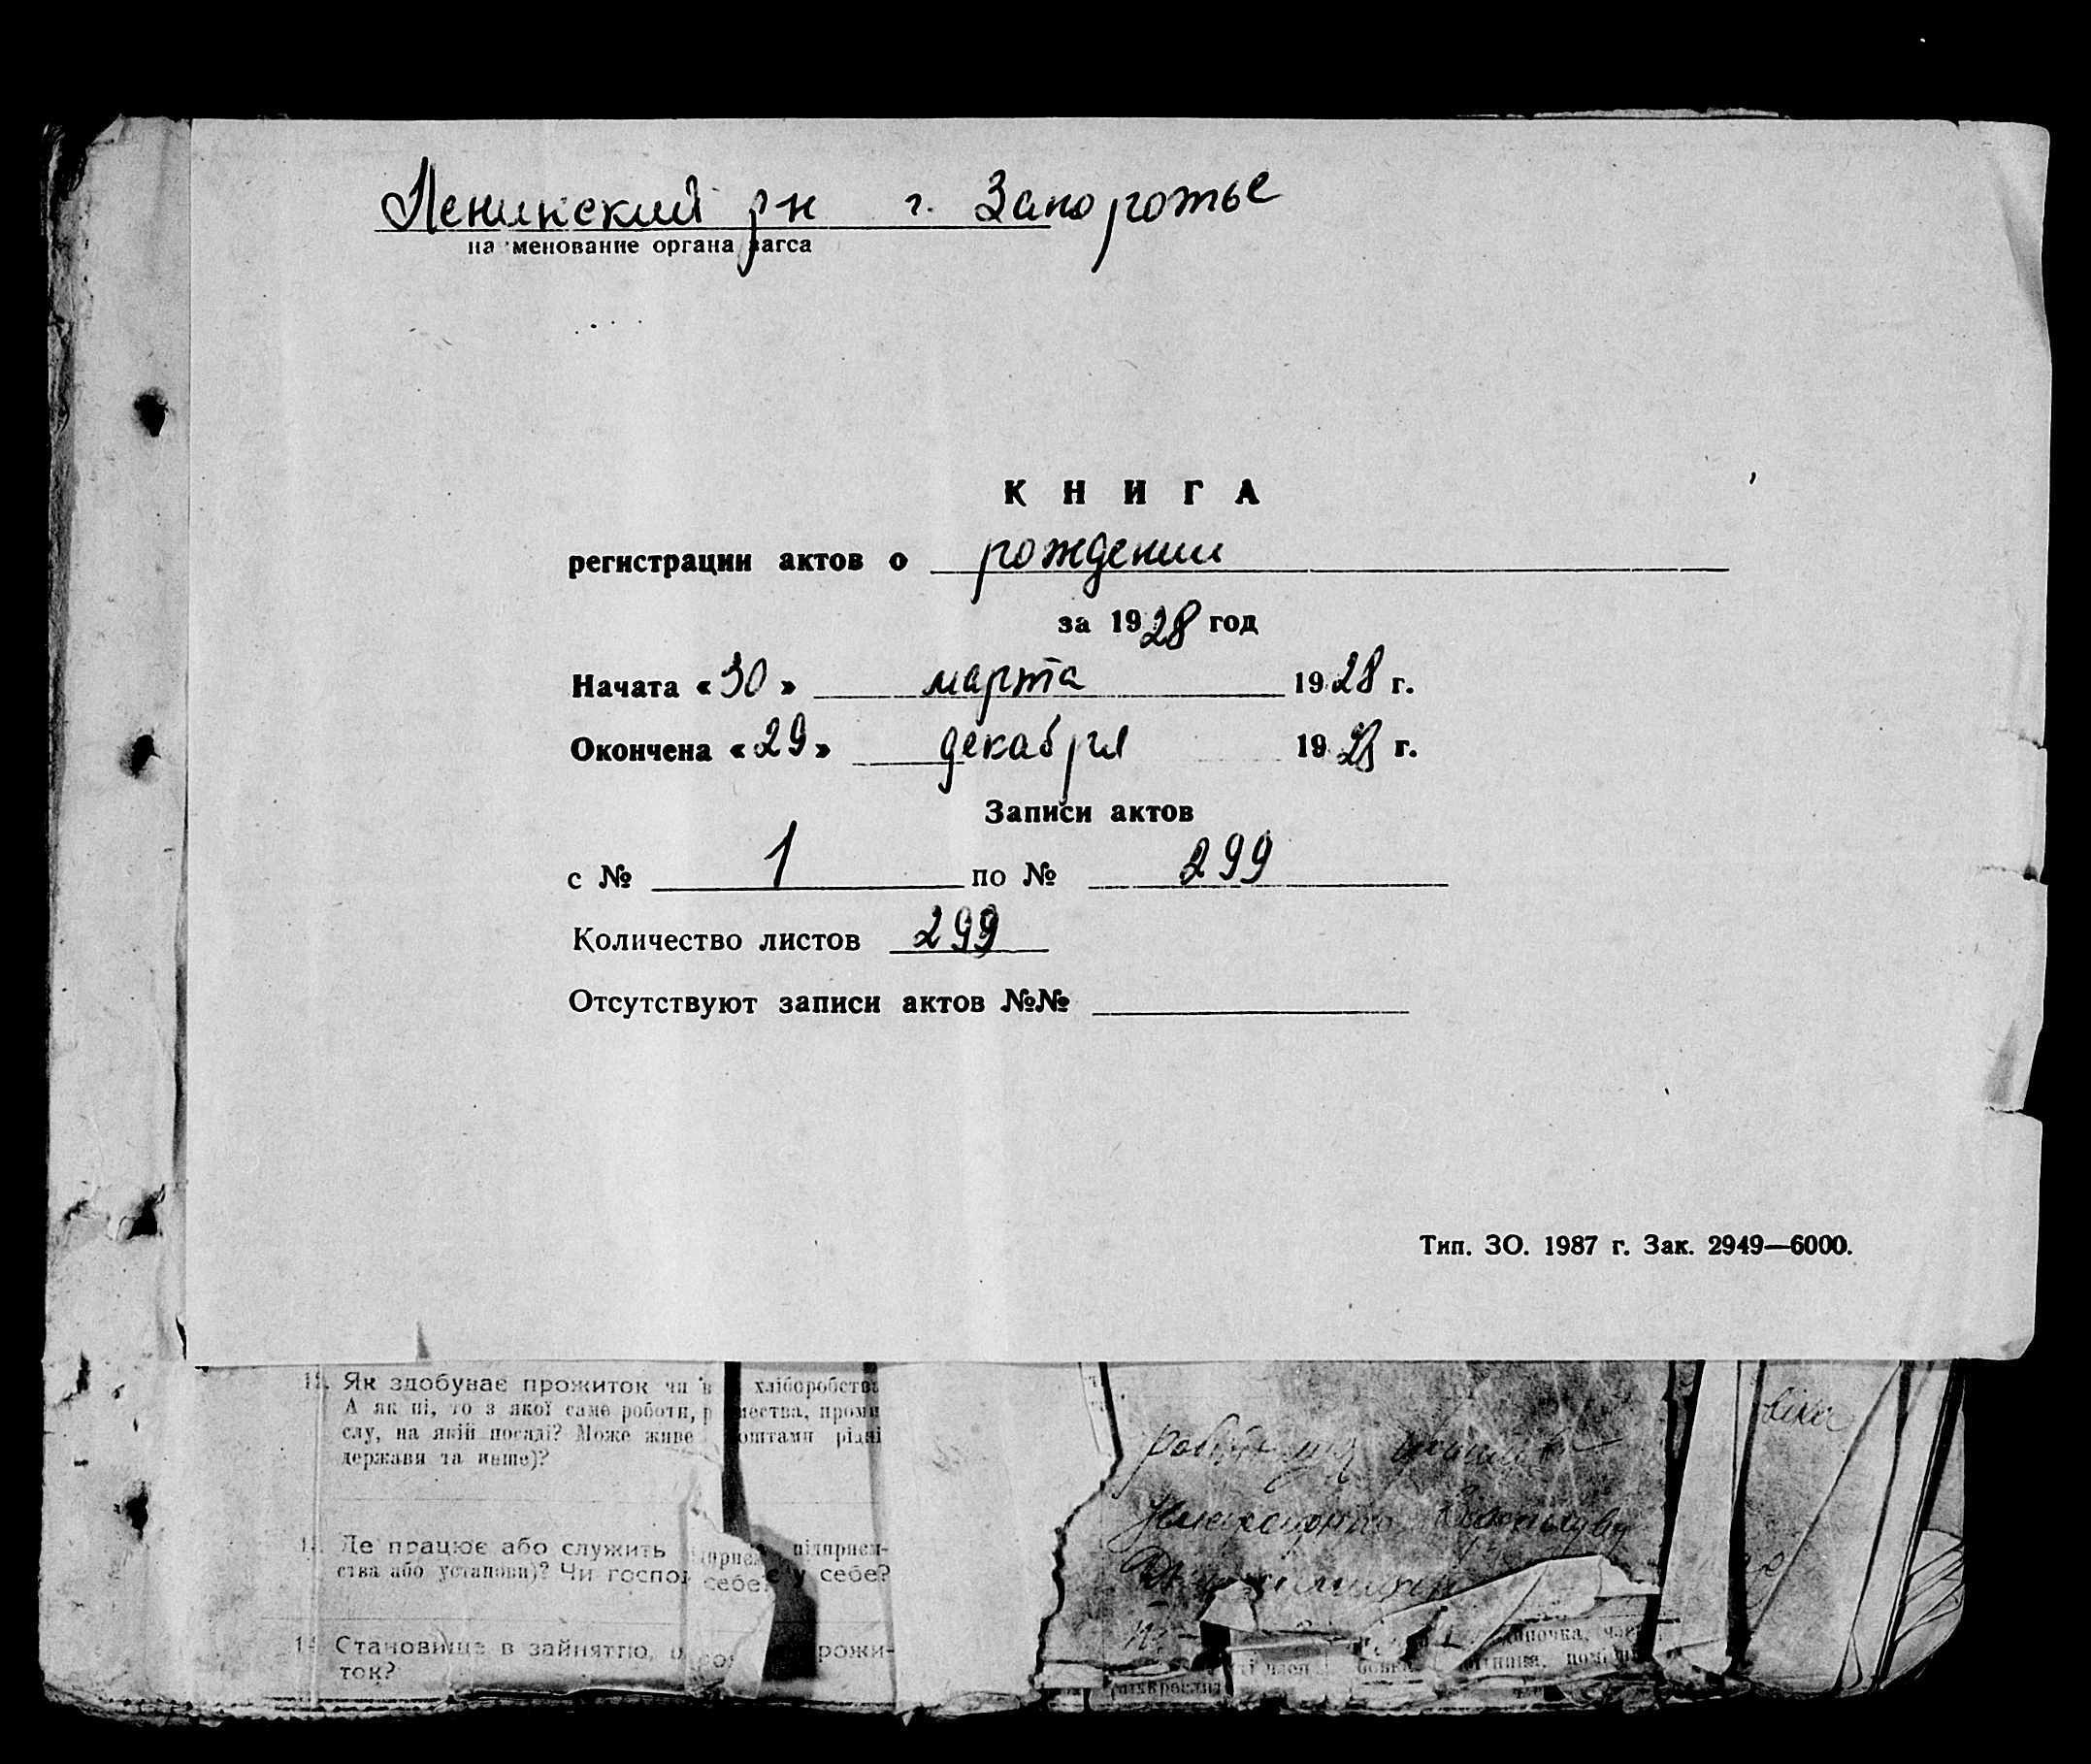 Ленинский рн г. Запорожье
на менование органа загса
КНИГА
регистрации актов о рождении
за 1928 год
Начата «30» марта 1928 г.
Окончена «29» декабря 1928 г.
Записи актов
с № 1 по № 299
Количество листов 299
Отсутствуют записи актов №№
Тип. ЗО. 1987 г. Зак. 2949—6000.
Як здобуває прожиток чи в хліборобств
А як ні, то з якої саме роботи, р мества, проми
слу, на якій посаді? Може живе оштами рідні
держави та инше)?
Де працює або служить підприєм-
ства або установи)? Чи госпо себе? є у себе?
Становище в зайняттю, рожи-
ток?